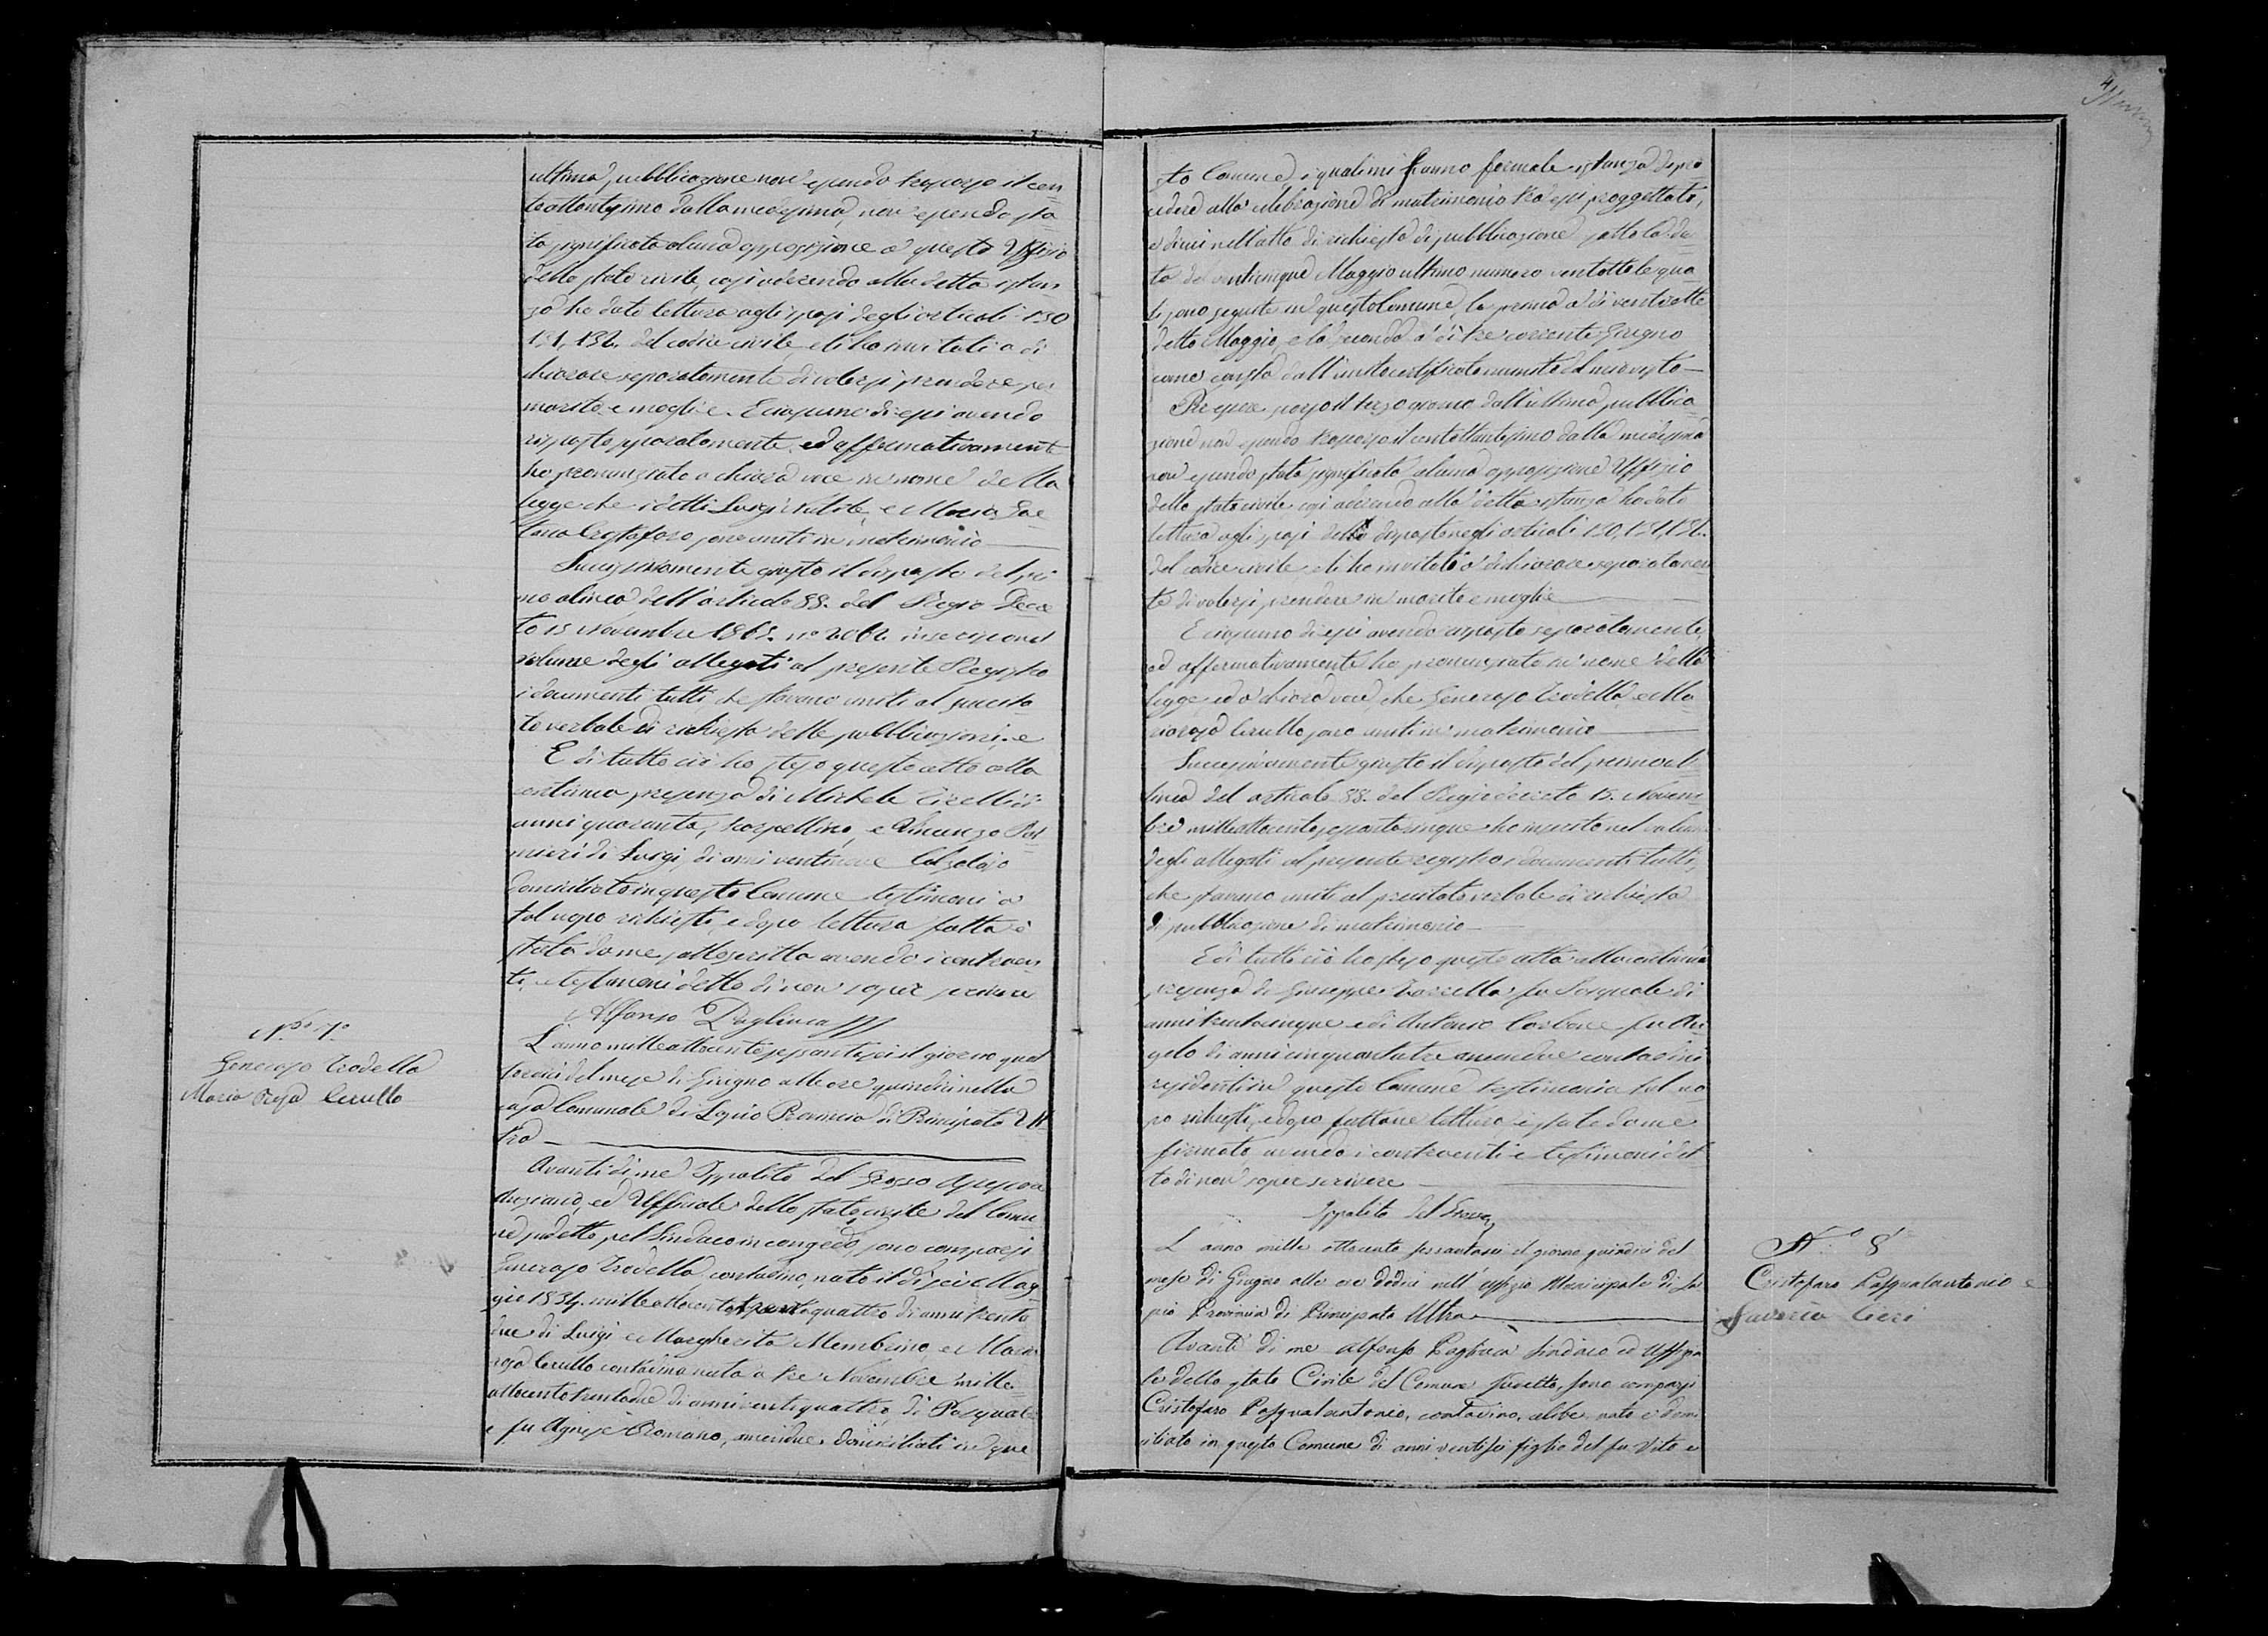 ultima pubblicazione non essendo trascorso il cen
tottantesimo dalla medesima, non essendo sta
ta significata alcuna opposizione a questo Uffizio
dello stato civile, così aderendo alla detta istan
za ho dato lettura agli sposi degli articoli 130
131, 132. del codice civile, e li ho invitati a di
chiarare separatamente di volersi prendere per
marito e moglie. E ciascuno di essi avendo
risposto separatamente ed affermativamente
ho pronunziato a chiara voce in nome della
legge che i detti Luigi e Maria Gae
tana Cristofaro sono uniti in matrimonio
Successivamente giusto il disposto del pri
mo alinea dell'articolo 88. del Regio Decre
to 15 Novembre 1865. n° 2602 inserisco nel
volume degli allegati al presente Registro
i documenti tutti che stavano uniti al succita
to verbale di richiesta delle pubblicazioni. e
E di tutto ciò ho steso questo atto alla
continua presenza di Michele Cirelli di
anni quaranta, scarpellino, e Vincenzo Pal
mieri di Luigi, di anni ventinove Calzolajo
domiciliato in questo Comune testimoni a
tal uopo richiesti, e dopo lettura fatta è
stato da me sottoscritto avendo i contraen
ti, e testimoni detto di non saper scrivere
Alfonso Pagliuca
N° 7°
Generoso Trodella
Maria Rosa Cerullo
L'anno mille ottocento sessantasei il giorno quat
tordici del mese di Giugno alle ore quindici nella
casa Comunale di Lapio Provincia di Principato Ul
tra
Avanti di me Ippolito del Grosso Assessore
Anziano, ed Uffiziale dello stato civile del Comu
ne sudetto, pel Sindaco in congedo, sono comparsi
Generoso Trodella contadino, nato il dì sei Mag
gio 1834. mille ottocento trentaquattro di anni trenta
due di Luigi e Margherita Membrino, e Maria
rosa Cerullo contadina nata a tre Novembre mille
ottocento trentadue di anni ventiquattro, di Pasquale
e fu Agnese Romano, amendue domiciliati in que
sto Comune, i quali mi hanno formale istanza di pro
cedere alla celebrazione di matrimonio tra essi proggettato,
e di cui nell'atto di richiesta di pubblicazione sotto la da
ta del venticinque Maggio ultimo numero ventotto le qua
li sono seguite in questo Comune, la prima a dì ventisette
detto Maggio, e la seconda a dì tre corrente Giugno
come consta dall'unito certificato munito del mio visto
Per essere scorso il terzo giorno dall'ultima pubblica
zione non essendo trascorso il centottantesimo dalla medesima
non essendo stata significata alcuna opposizione Uffizio
dello stato civile così aderendo alla detta istanza ho dato
lettura agli sposi delle disposte negli articoli 130, 131, 132.
del codice civile, e li ho invitati a dichiarare separatamen
te di volersi prendere in marito e moglie
E ciascuno di essi avendo risposto separatamente,
ed affermativamente ho pronunziato in nome della
legge, ed a chiara voce, che Generoso Trodella, e Ma
riarosa Cerullo sono uniti in matrimonio
Successivamente giusto il disposto del primo al
linea del articolo 88. del Regio decreto 15. Novem
bre mille ottocento sessantacinque ho inserito nel volume
degli allegati al presente registro i documenti tutti,
che stavano uniti al precitato verbale di richiesta
di pubblicazione di matrimonio
E di tutto ciò ho steso questo atto alla continua
presenza di Giuseppe fu Pasquale di
anni trentacinque e di Antonio Carbone fu An
gelo di anni cinquantatre amendue contadini
residenti in questo Comune testimoni a tal uo
po richiesti, e dopo fattane lettura è stato da me
firmato, avendo i contraenti e testimoni det
to di non saper scrivere
Ippolito del Grosso
N° 8°
Cristofaro Pasqualantonio e
Saveria Cieri
L'anno mille ottocento sessantasei il giorno quindici del
mese di Giugno alle ore dodici nell'uffizio Municipale di La
pio Provincia di Principato Ultra
Avanti di me Alfonso Pagliuca Sindaco ed Uffizia
le dello stato Civile del Comune sudetto, sono comparsi
Cristofaro Pasqualantonio, contadino, celibe nato e domi
ciliato in questo Comune di anni ventisei figlio del fu Vito e